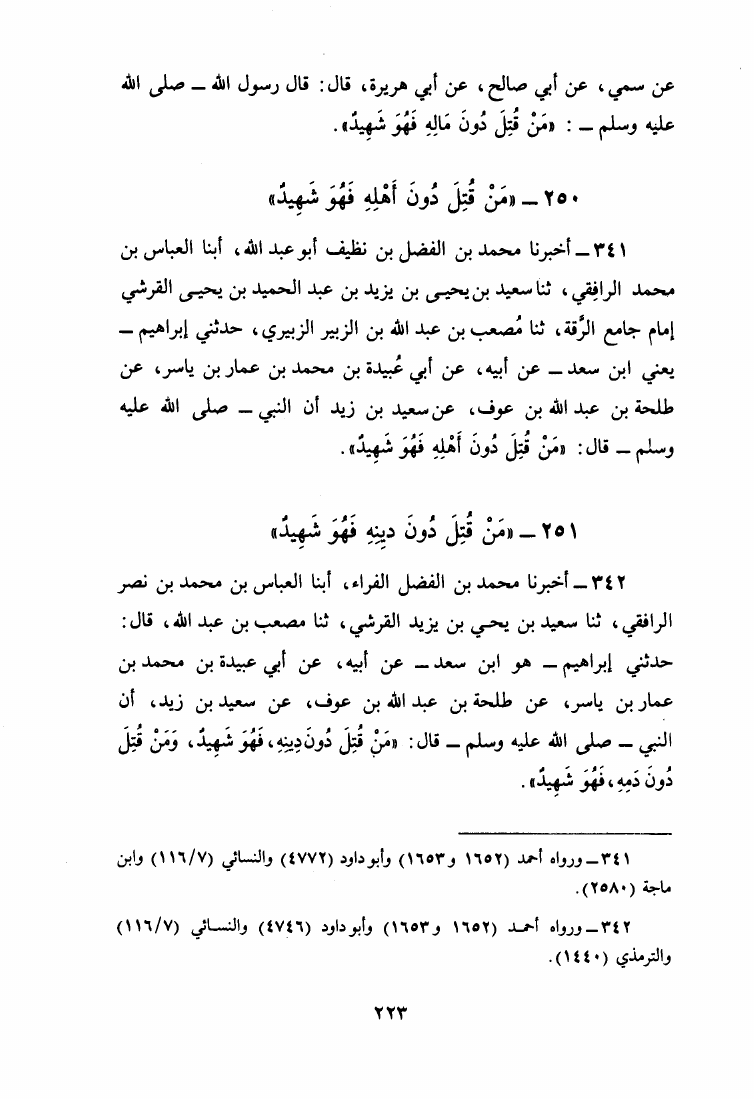 عن سمي، عن أبي صالح، عن أبي هريرة، قال: قال رسول الله ــ صلى الله
عليه وسلم ــ : «مَنْ قُتِلَ دُونَ مَالِهِ فَهُوَ شَهِيدٌ».
٢٥٠ ــ «مَنْ قُتِلَ دُونَ أَهْلِهِ فَهُوَ شَهِيدٌ»
٣٤١ ــ أخبرنا محمد بن الفضل بن نظيف أبو عبد الله، أبنا العباس بن
محمد الرافِقي، ثنا سعيد بن يحيى بن يزيد بن عبد الحميد بن يحيى القرشي
إمام جامع الرَّقة، ثنا مُصعب بن عبد الله بن الزبير الزبيري، حدثني إبراهيم ــ
يعني ابن سعد ــ عن أبيه، عن أبي عُبيدة بن محمد بن عمار بن ياسر، عن
طلحة بن عبد الله بن عوف، عن سعيد بن زيد أن النبي ــ صلى الله عليه
وسلم ــ قال: «مَنْ قُتِلَ دُونَ أَهْلِهِ فَهُوَ شَهِيدٌ».
٢٥١ ــ «مَنْ قُتِلَ دُونَ دِينِهِ فَهُوَ شَهِيدٌ»
٣٤٢ ــ أخبرنا محمد بن الفضل الفراء، أبنا العباس بن محمد بن نصر
الرافقي، ثنا سعيد بن يحيى بن يزيد القرشي، ثنا مصعب بن عبد الله، قال:
حدثني إبراهيم ــ هو ابن سعد ــ عن أبيه، عن أبي عبيدة بن محمد بن
عمار بن ياسر، عن طلحة بن عبد الله بن عوف، عن سعيد بن زيد، أن
النبي ــ صلى الله عليه وسلم ــ قال: «مَنْ قُتِلَ دُونَ دِينِهِ، فَهُوَ شَهِيدٌ، وَمَنْ قُتِلَ
دُونَ دَمِهِ، فَهُوَ شَهِيدٌ».
٣٤١ ــ ورواه أحمد (١٦٥٢ و ١٦٥٣) وأبو داود (٤٧٧٢) والنسائي (١١٦/٧) وابن
ماجة (٢٥٨٠).
٣٤٢ ــ ورواه أحمد (١٦٥٢ و ١٦٥٣) وأبو داود (٤٧٤٦) والنسائي (١١٦/٧)
والترمذي (١٤٤٠).
٢٢٣